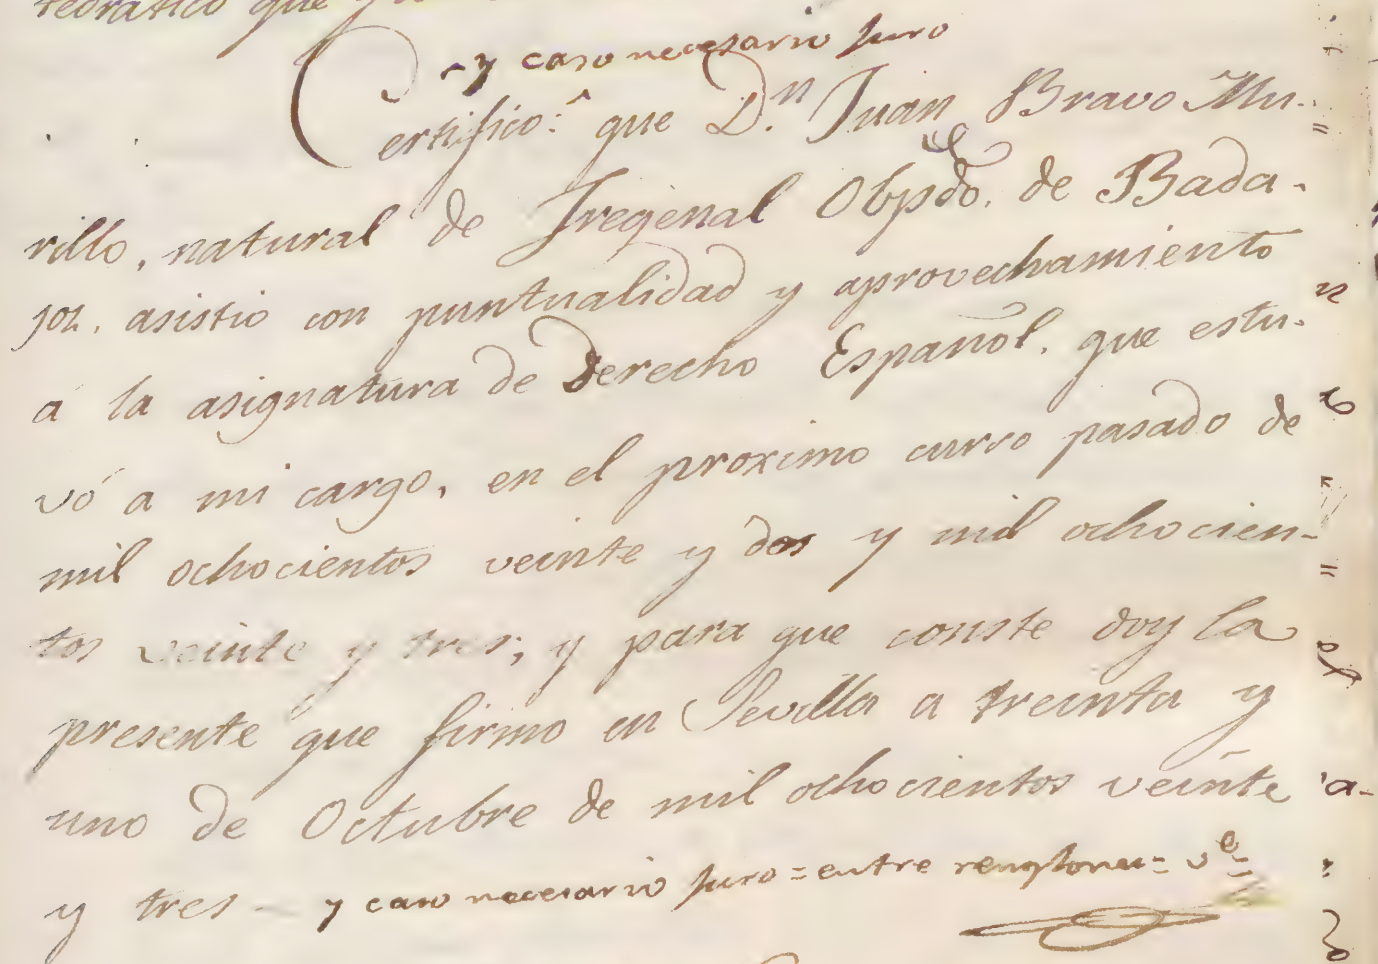 tedratico que
y caso necesario juro
Certifico: que D.n Juan Bravo Mu-
rillo, natural de Fregenal Obpdo. de Bada-
joz, asistio con puntualidad y aprovechamiento
á la asignatura de Derecho Español, que estu-
vó á mi cargo, en el proximo curso pasado de
mil ochocientos veinte y dos y mil ochocien-
tos veinte y tres; y para que conste doy la
presente que firmo en Sevilla a treinta y
uno de Octubre de mil ochocientos veinte
y tres - y caso necesario juro = entre renglones = ve